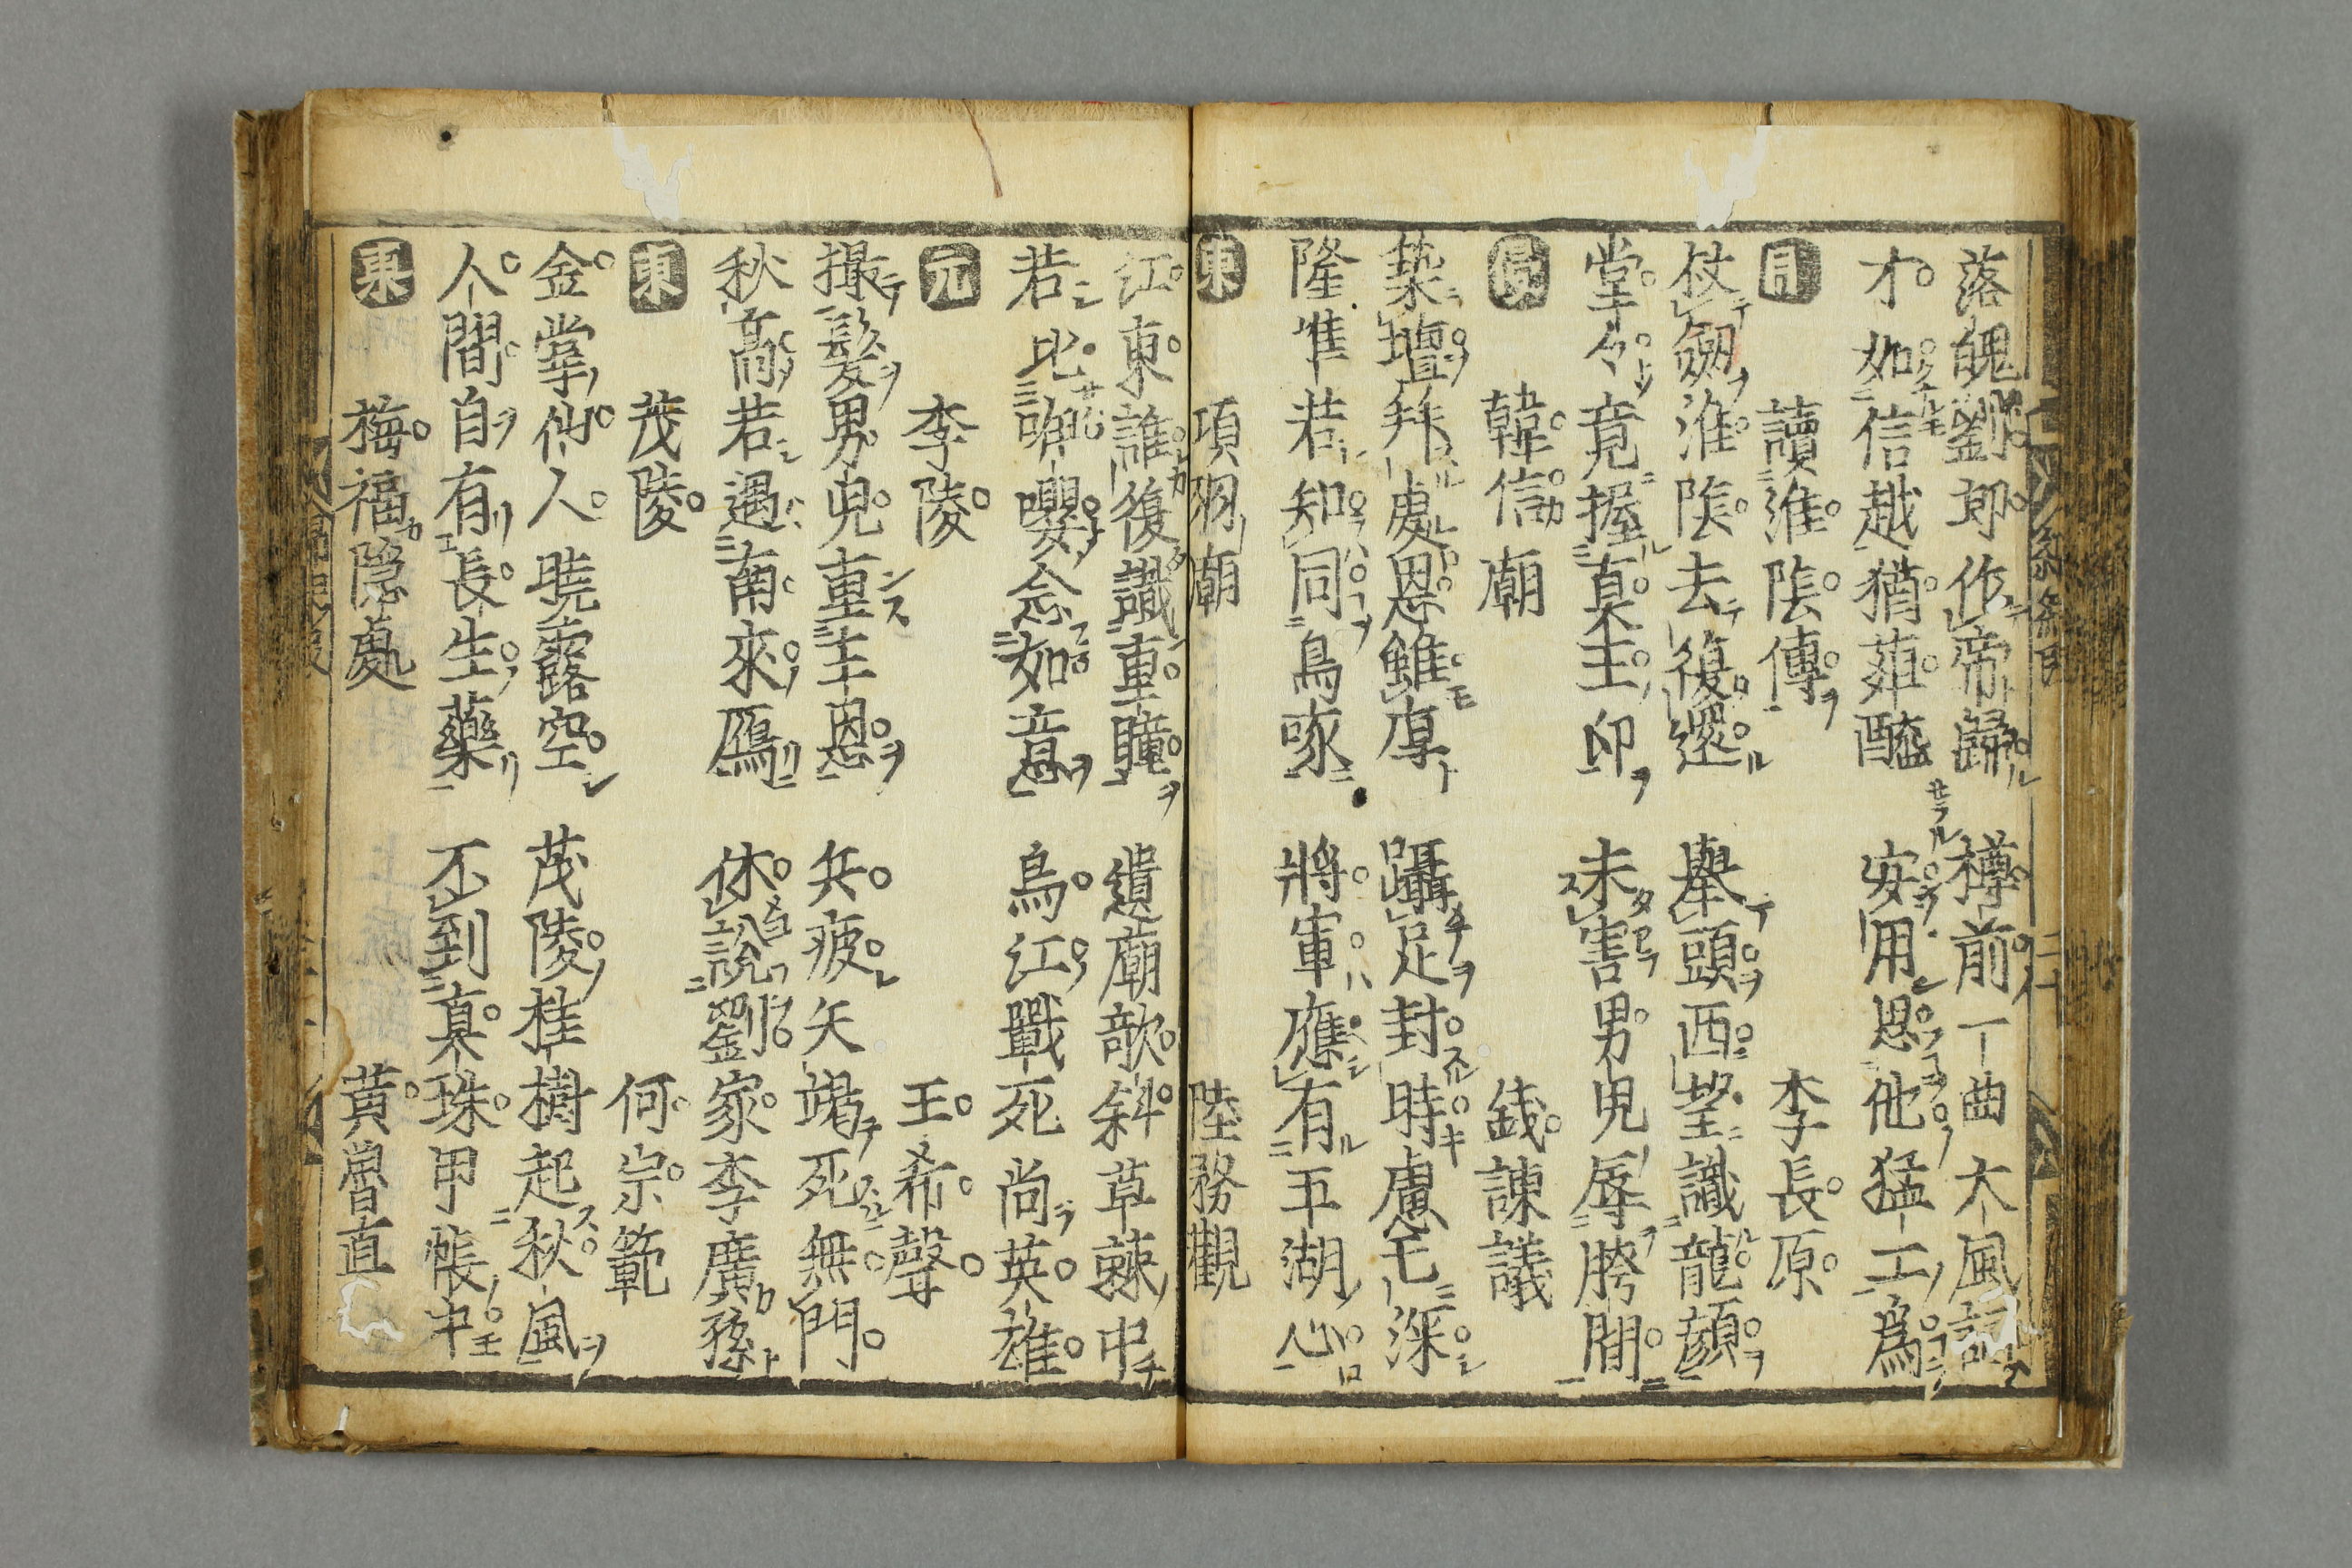 落魄劉郎作帝歸　樽前一曲大風詞
才如信越猶葅醢　安用思他猛士爲
讀淮陰傳　李長原
杖劔淮陰去復還　舉頭西望識龍顔
堂々竟握真王印　未害男兒辱胯間
韓信廟　錢諫議
築壇拜處恩雖厚　躡足封時慮已深
隆準若知同鳥啄　將軍應有五湖心
東　項羽廟　陸務觀
江東誰復識重瞳　遺廟欹斜草棘中
若比咿嚶念如意　烏江戰死尚英雄
元　李陵　王希聲
撮髮男兒重主恩　兵疲矢竭死無門
秋高若遇南來鴈　休說劉家李廣孫
東　茂陵　何宗範
金掌仙人曉露空　茂陵桂樹起秋風
人間自有長生藥　不到真珠甲帳中
東　梅福隱處　黄魯直